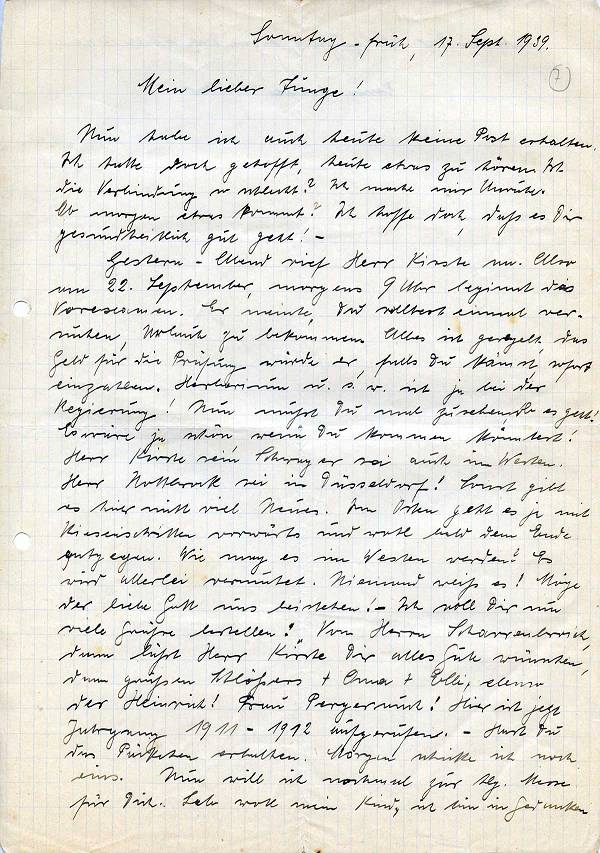 Sonntag - früh, 17. Sept. 1939.
1
Mein lieber Junge!
Nun habe ich auch heute keine Post erhalten.
Ich hatte doch gehofft, heute etwas zu hören. Ist
die Verbindung so schlecht? Ich mache mir Unruhe.
Ob morgen etwas kommt? Ich hoffe doch, daß es Dir
gesundheitlich gut geht! -
Gestern - Abend rief Herr Kirste an. Also
am 22. September, morgens 9 Uhr beginnt das
Vorexamen. Er meinte, Du solltest einmal ver-
suchen, Urlaub zu bekommen. Alles ist geregelt, das
Geld für die Prüfung würde er, falls Du kämst, sofort
einzahlen. Herbarium u. s. w. ist ja bei der
Regierung! Nun mußt Du mal zusehen, ob es geht!
Es wäre ja schön wenn Du kommen könntest!
Herr Kirste sein Schwager sei auch im Westen.
Herr sei in Düsseldorf! Sonst gibt
es hier nicht viel Neues. Im Osten geht es ja mit
Riesenschritten vorwärts und wohl bald dem Ende
entgegen. Wie mag es im Westen werden? Es
wird allerlei vermutet. Niemand weiß es! Möge
der liebe Gott uns beistehen! - Ich soll Dir nun
viele Grüße bestellen! Von Herrn Scharrenbroich,
dann läßt Herr Kirste Dir alles Gute wünschen,
dann grüßen Schlößers + Anna + Elli, ebenso
der Heinrich! Frau ! Hier ist jetzt
Jahrgang 1911 - 1912 aufgerufen. - Hast Du
das Päckchen erhalten. Morgen schicke ich noch
eins. Nun will ich nochmal zur hlg. Messe
für Dich. Leb wohl mein Kind, ich bin in Gedanken